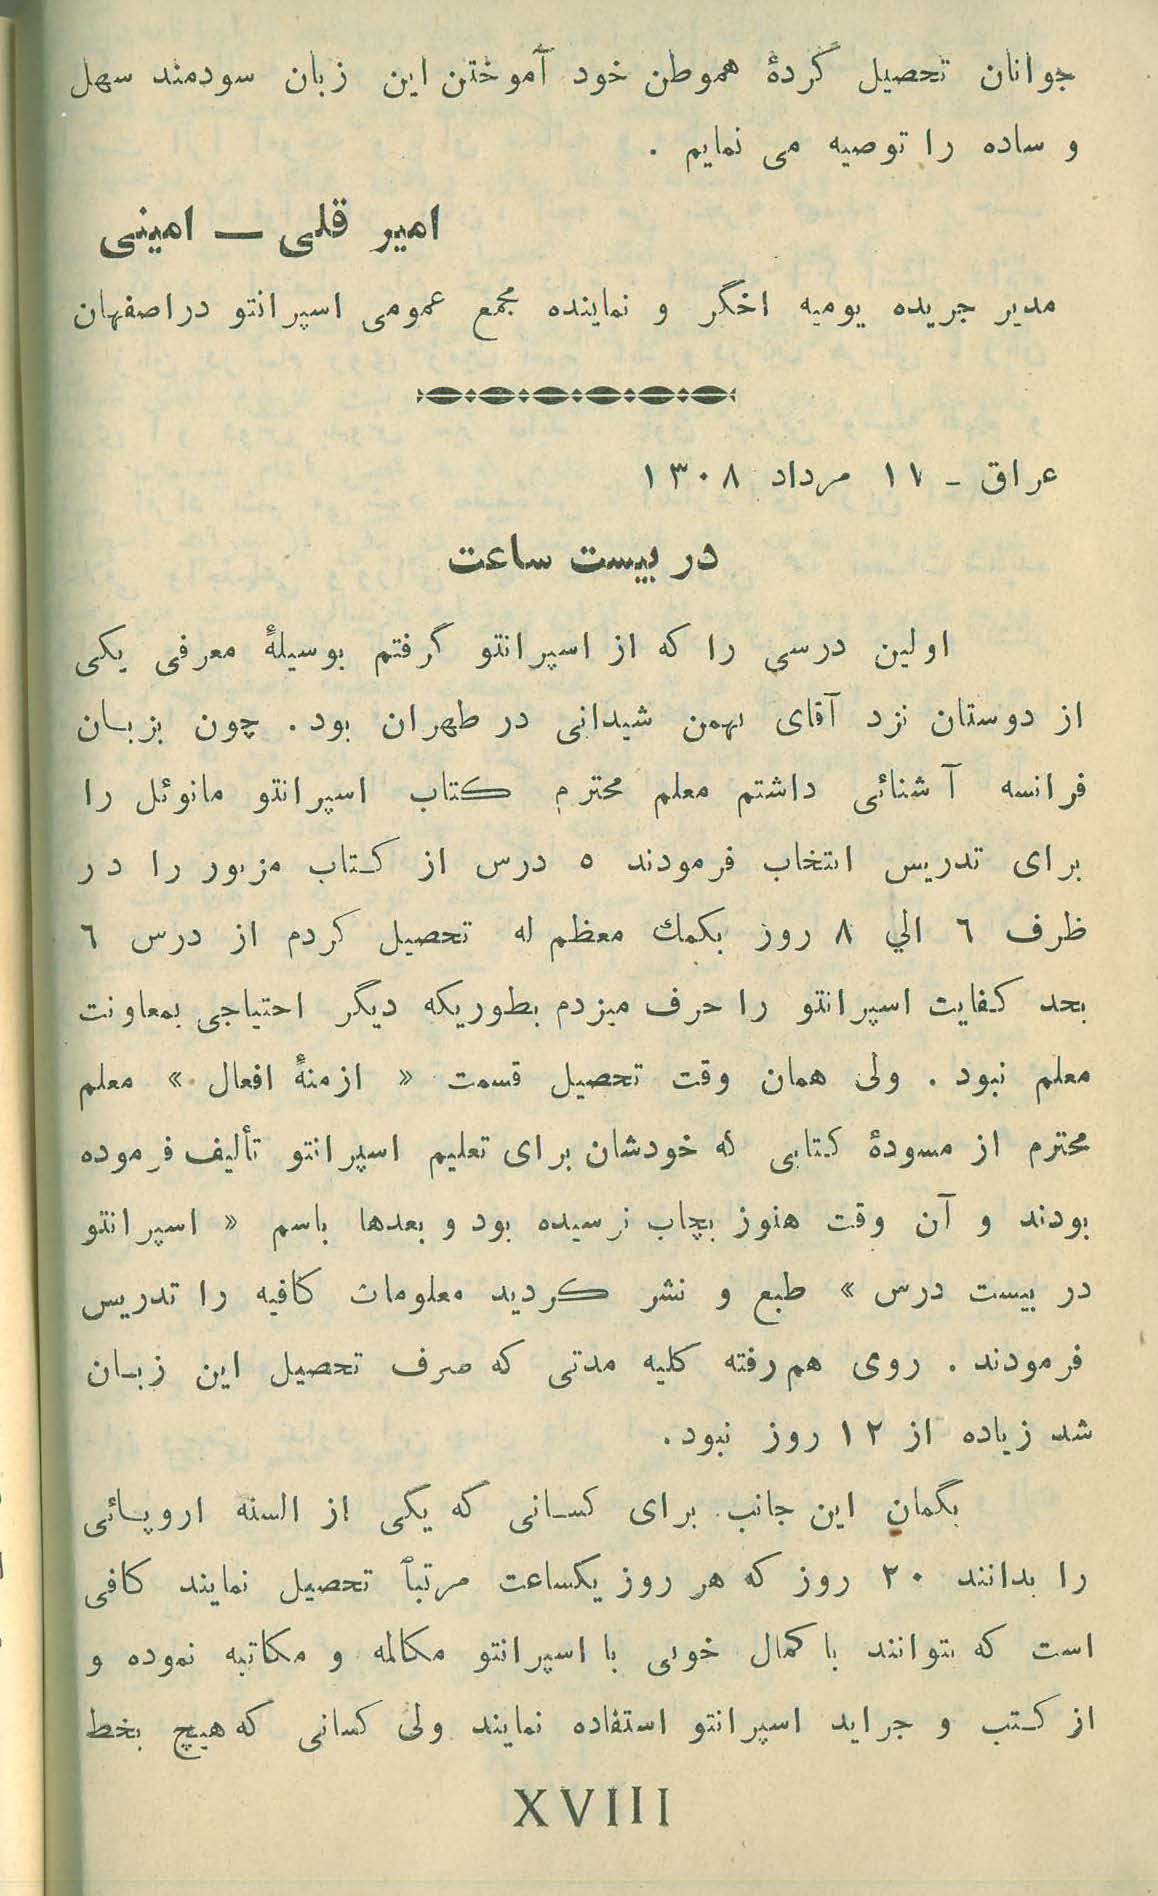 جوانان تحصیل کردهٔ هموطن خود آموختن این زبان سودمند سهل
و ساده را توصیه می نمایم .
امیر قلی — امینی
مدیر جریده یومیه اخگر و نماینده مجمع عمومی اسپرانتو در اصفهان
عراق - ۱۷ مرداد ۱۳۰۸
در بیست ساعت
اولین درسی را که از اسپرانتو گرفتم بوسیلهٔ معرفی یکی
از دوستان نزد آقای بهمن شیدانی در طهران بود . چون بزبان
فرانسه آشنائی داشتم معلم محترم کتاب اسپرانتو مانوئل را
برای تدریس انتخاب فرمودند ٥ درس از کتاب مزبور را در
ظرف ٦ الي ۸ روز بکمك معظم له تحصیل کردم از درس ٦
بحد کفایت اسپرانتو را حرف میزدم بطوریکه دیگر احتیاجی بمعاونت
معلم نبود . ولی همان وقت تحصیل قسمت « ازمنهٔ افعال » معلم
محترم از مسودهٔ کتابی که خودشان برای تعلیم اسپرانتو تألیف فرموده
بودند و آن وقت هنوز بچاپ نرسیده بود و بعدها باسم « اسپرانتو
در بیست درس » طبع و نشر کردید معلومات کافیه را تدریس
فرمودند . روی هم رفته کلیه مدتی که صرف تحصیل این زبان
شد زیاده از ۱۲ روز نبود .
بگمان این جانب برای کسانی که یکی از السنه اروپائی
را بدانند ۲۰ روز که هر روز یکساعت مرتباً تحصیل نمایند کافی
است که بتوانند با کمال خوبی با اسپرانتو مکالمه و مکاتبه نموده و
از کتب و جراید اسپرانتو استفاده نمایند ولی کسانی که هیچ بخط
XVIII